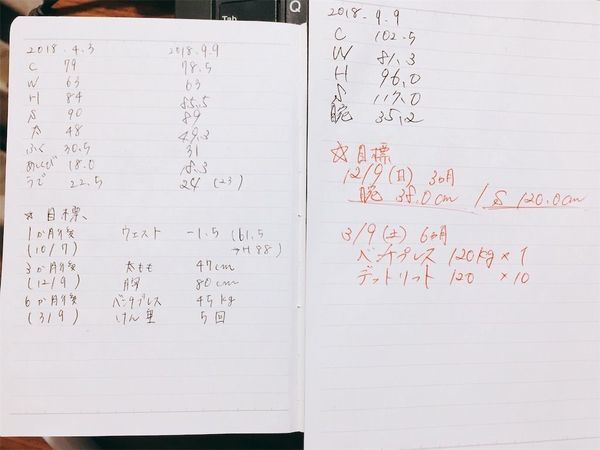 Tab
Q
2018.4.3 2018.9.9
C 79 78.5
W 63 63
H 84 85.5
S 90 89
太 48 49.3
ふく 30.5 31
あしくび 18.0 18.3
うで 22.5 24 (23)
☆ 目標
1か月後 ウェスト -1.5 (61.5
(10/7)
3か月後 太もも 47cm
(12/9) 胸 80cm
6か月後 ベンチプレス 45kg
(3/9) けん垂 5回
2018.9.9
C 102.5
W 81.3
H 96.0
S 117.0
腕 35.2
☆ 目標
12/9 (日) 3ヵ月
腕 38.0cm / S 120.0cm
3/9 (土) 6ヵ月
ベンチプレス 120kg × 1
デットリフト 120 × 10